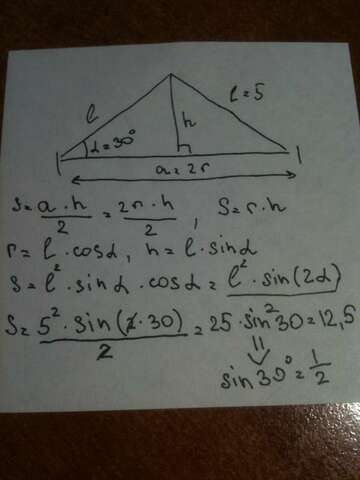 l
l = 5
h
α = 30°
a = 2r
S = a · h / 2 = 2r · h / 2 , S = r · h
r = l · cosα , h = l · sinα
S = l² · sinα · cosα = l² · sin(2α)
S = 5² · sin(2 · 30) / 2 = 25 · sin² 30 = 12,5
sin 30° = 1/2